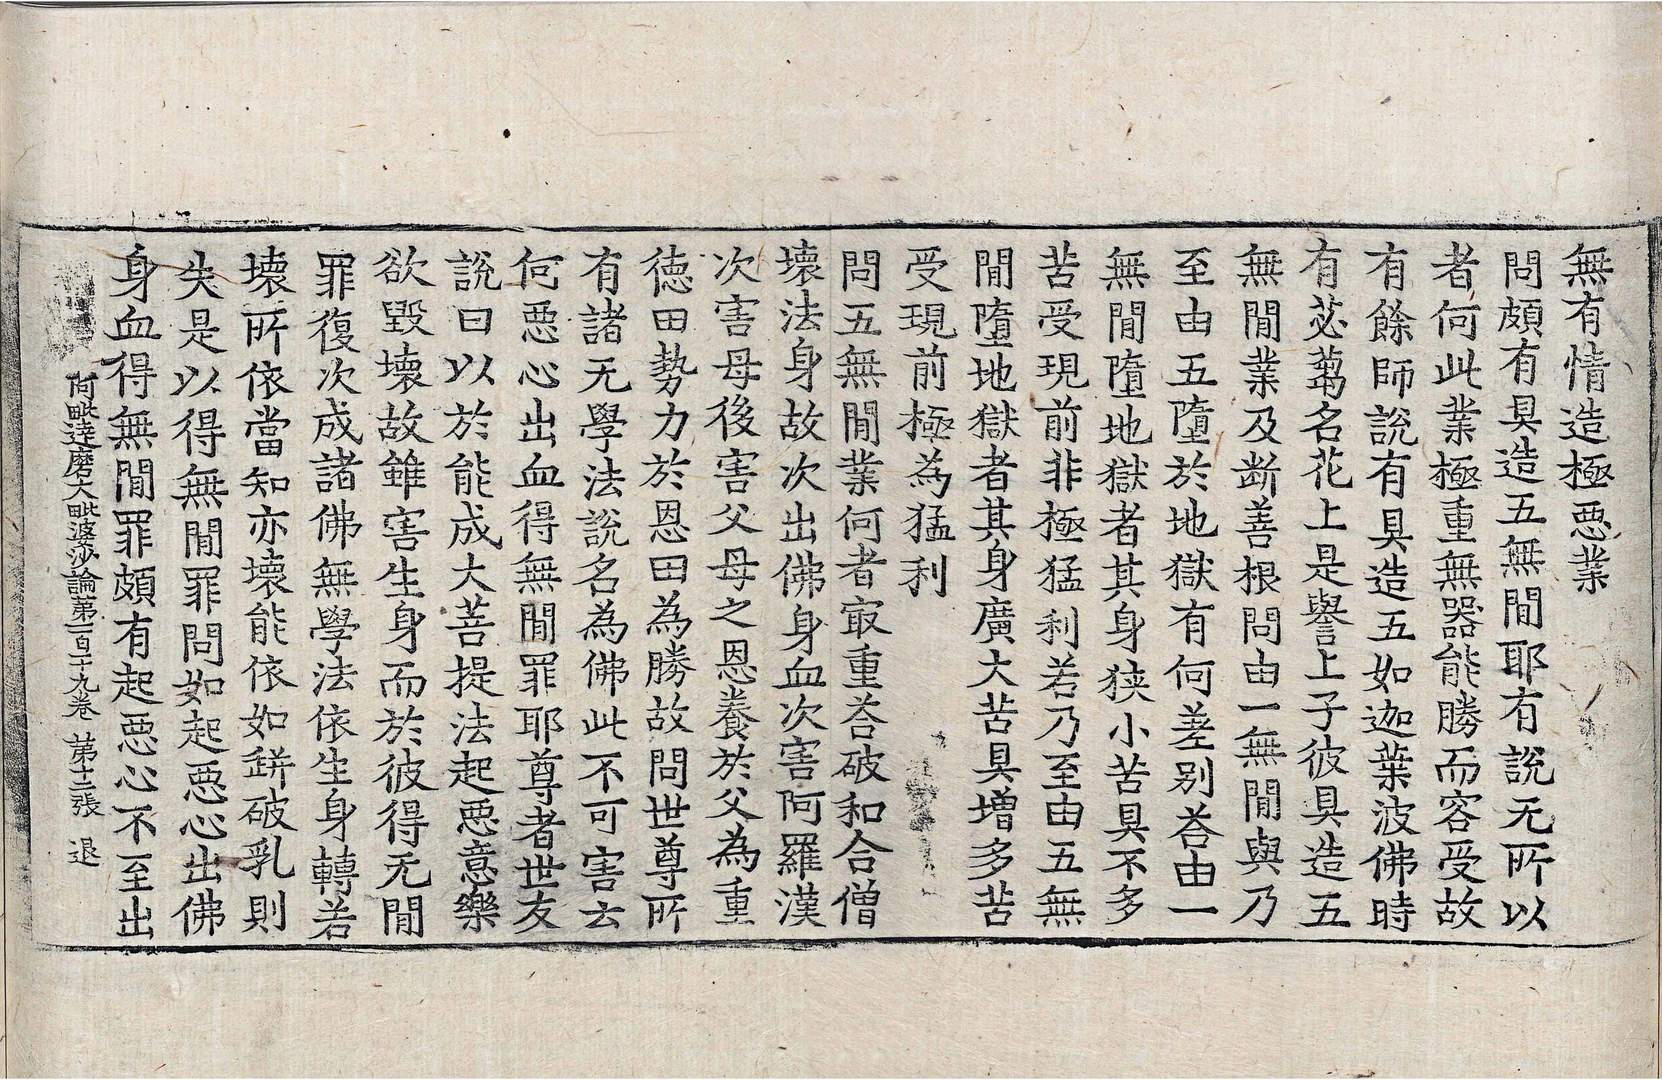 無有情造極惡業
問頗有具造五無間耶有說无所以
者何此業極重無器能勝而容受故
有餘師說有具造五如迦葉波佛時
有苾蒭名花上是譽上子彼具造五
無間業及断善根問由一無間與乃
至由五墮於地獄有何差别荅由一
無間墮地獄者其身狹小苦具不多
苦受現前非極猛利若乃至由五無
間墮地獄者其身廣大苦具增多苦
受現前極為猛利
問五無間業何者㝡重荅破和合僧
壞法身故次出佛身血次害阿羅漢
次害母後害父母之恩養於父為重
德田勢力於恩田為勝故問世尊所
有諸无學法說名為佛此不可害云
何惡心出血得無間罪耶尊者世友
說曰以於能成大菩提法起惡意樂
欲毀壞故雖害生身而於彼得无間
罪復次成諸佛無學法依生身轉若
壞所依當知亦壞能依如缾破乳則
失是以得無間罪問如起惡心出佛
身血得無間罪頗有起惡心不至出
阿毗達磨大毗婆沙論第一百一十九卷 第十二張 退